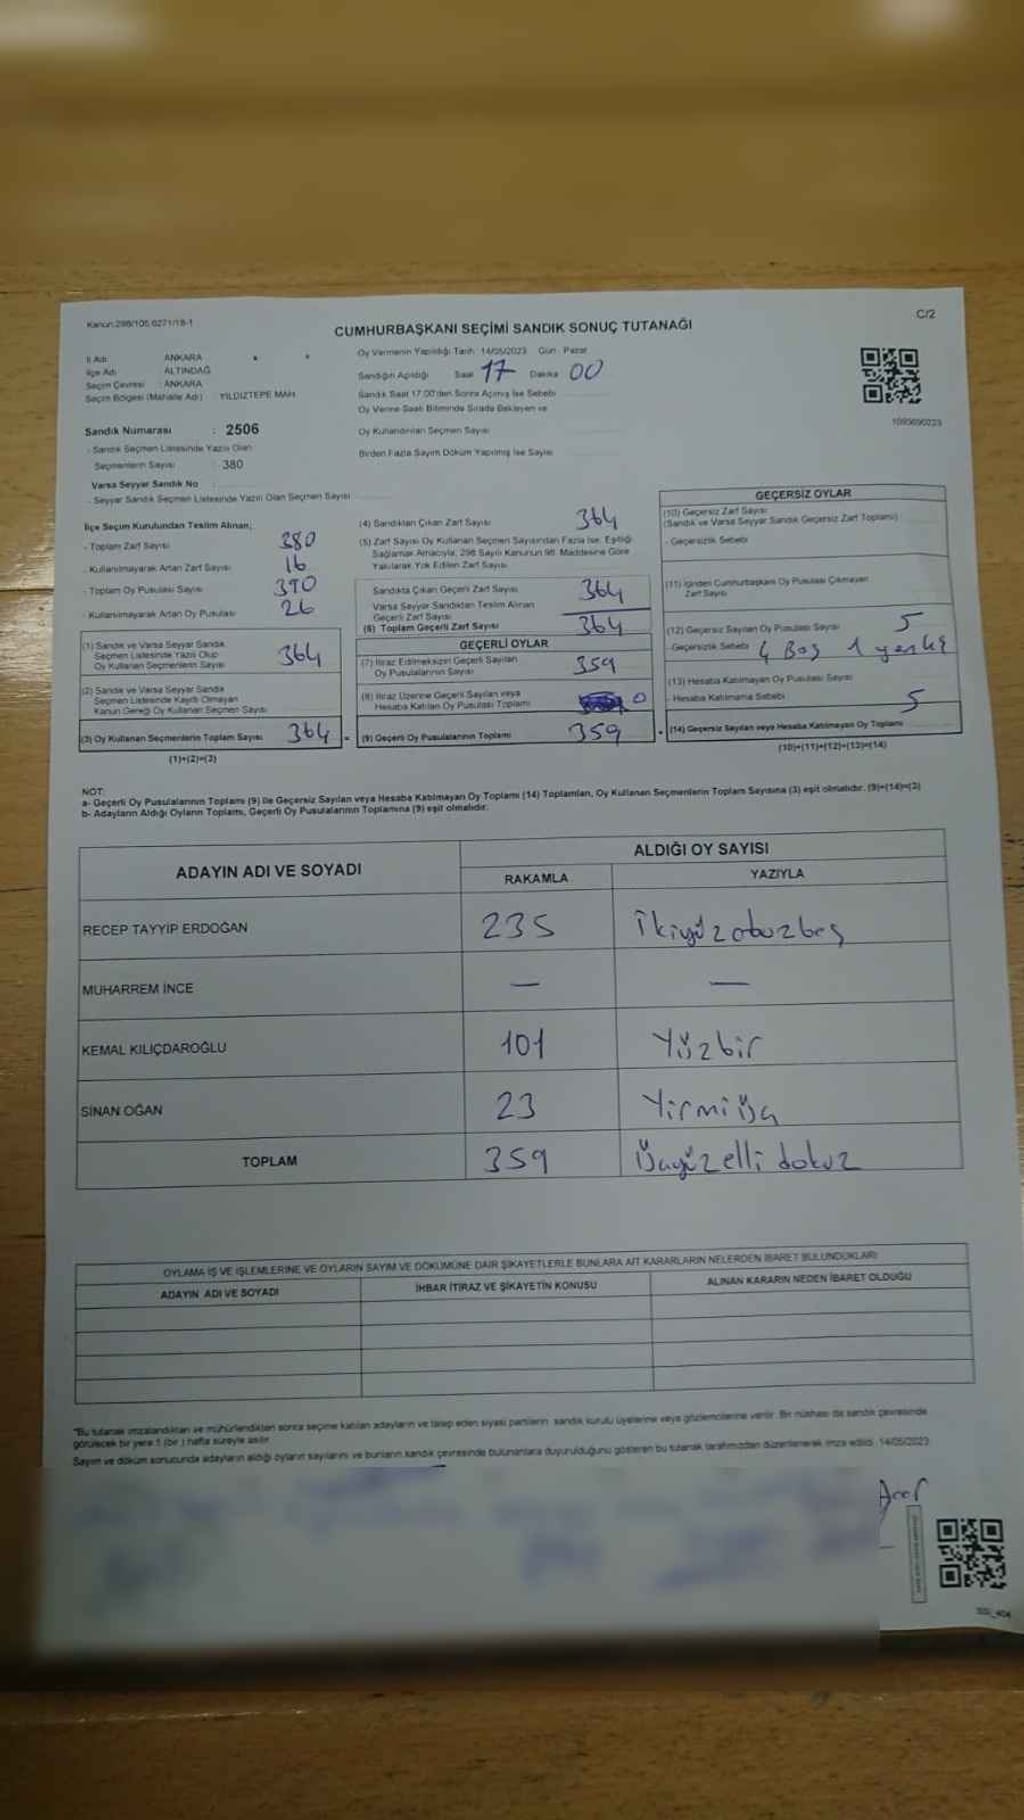 Kanun:298/105.6271/18-1
C/2
CUMHURBAŞKANI SEÇİMİ SANDIK SONUÇ TUTANAĞI
İl Adı ANKARA
İlçe Adı ALTINDAĞ
Seçim Çevresi : ANKARA
Seçim Bölgesi (Mahalle Adı) YILDIZTEPE MAH.
Sandık Numarası : 2506
- Sandık Seçmen Listesinde Yazılı Olan
Seçmenlerin Sayısı : 380
Varsa Seyyar Sandık No
- Seyyar Sandık Seçmen Listesinde Yazılı Olan Seçmen Sayısı
Oy Vermenin Yapıldığı Tarih: 14/05/2023 Gün : Pazar
Sandığın Açıldığı Saat 17 Dakika 00
Sandık Saat 17.00'den Sonra Açılmış İse Sebebi
Oy Verme Saati Bitiminde Sırada Bekleyen ve
Oy Kullandırılan Seçmen Sayısı
Birden Fazla Sayım Döküm Yapılmış İse Sayısı
1095690223
İlçe Seçim Kurulundan Teslim Alınan;
- Toplam Zarf Sayısı 380
- Kullanılmayarak Artan Zarf Sayısı 16
- Toplam Oy Pusulası Sayısı 390
- Kullanılmayarak Artan Oy Pusulası 26
(1) Sandık ve Varsa Seyyar Sandık
Seçmen Listesinde Yazılı Olup
Oy Kullanan Seçmenlerin Sayısı 364
(2) Sandık ve Varsa Seyyar Sandık
Seçmen Listesinde Kayıtlı Olmayan
Kanun Gereği Oy Kullanan Seçmen Sayısı
(3) Oy Kullanan Seçmenlerin Toplam Sayısı 364 =
(1)+(2)=(3)
(4) Sandıktan Çıkan Zarf Sayısı 364
(5) Zarf Sayısı Oy Kullanan Seçmen Sayısından Fazla İse, Eşitliği
Sağlamak Amacıyla, 298 Sayılı Kanunun 98. Maddesine Göre
Yakılarak Yok Edilen Zarf Sayısı
Sandıkta Çıkan Geçerli Zarf Sayısı 364
Varsa Seyyar Sandıktan Teslim Alınan
Geçerli Zarf Sayısı
(6) Toplam Geçerli Zarf Sayısı 364
GEÇERLİ OYLAR
(7) İtiraz Edilmeksizin Geçerli Sayılan
Oy Pusulalarının Sayısı 359
(8) İtiraz Üzerine Geçerli Sayılan veya
Hesaba Katılan Oy Pusulası Toplamı 0
(9) Geçerli Oy Pusulalarının Toplamı 359 +
GEÇERSİZ OYLAR
(10) Geçersiz Zarf Sayısı
(Sandık ve Varsa Seyyar Sandık Geçersiz Zarf Toplamı)
- Geçersizlik Sebebi
(11) İçinden Cumhurbaşkanı Oy Pusulası Çıkmayan
Zarf Sayısı
(12) Geçersiz Sayılan Oy Pusulası Sayısı 5
- Geçersizlik Sebebi 4 Boş 1
(13) Hesaba Katılmayan Oy Pusulası Sayısı
- Hesaba Katılmama Sebebi
(14) Geçersiz Sayılan veya Hesaba Katılmayan Oy Toplamı 5
(10)+(11)+(12)+(13)=(14)
NOT:
a- Geçerli Oy Pusulalarının Toplamı (9) ile Geçersiz Sayılan veya Hesaba Katılmayan Oy Toplamı (14) Toplamları, Oy Kullanan Seçmenlerin Toplam Sayısına (3) eşit olmalıdır. (9)+(14)=(3)
b- Adayların Aldığı Oyların Toplamı, Geçerli Oy Pusulalarının Toplamına (9) eşit olmalıdır.
ADAYIN ADI VE SOYADI ALDIĞI OY SAYISI
RAKAMLA YAZIYLA
RECEP TAYYİP ERDOĞAN 235 İkiyüzotuzbeş
MUHARREM İNCE — —
KEMAL KILIÇDAROĞLU 101 Yüzbir
SİNAN OĞAN 23 Yirmiüç
TOPLAM 359 Üçyüzelli dokuz
OYLAMA İŞ VE İŞLEMLERİNE VE OYLARIN SAYIM VE DÖKÜMÜNE DAİR ŞİKAYETLERLE BUNLARA AİT KARARLARIN NELERDEN İBARET BULUNDUKLARI
ADAYIN ADI VE SOYADI İHBAR İTİRAZ VE ŞİKAYETİN KONUSU ALINAN KARARIN NEDEN İBARET OLDUĞU
"Bu tutanak imzalandıktan ve mühürlendikten sonra seçime katılan adayların ve talep eden siyasi partilerin sandık kurulu üyelerine veya gözlemcilerine verilir. Bir nüshası da sandık çevresinde
görülecek bir yere 1 (bir ) hafta süreyle asılır.
Sayım ve döküm sonucunda adayların aldığı oyların sayılarını ve bunların sandık çevresinde bulunanlara duyurulduğunu gösteren bu tutanak tarafımızdan düzenlenerek imza edildi. 14/05/2023